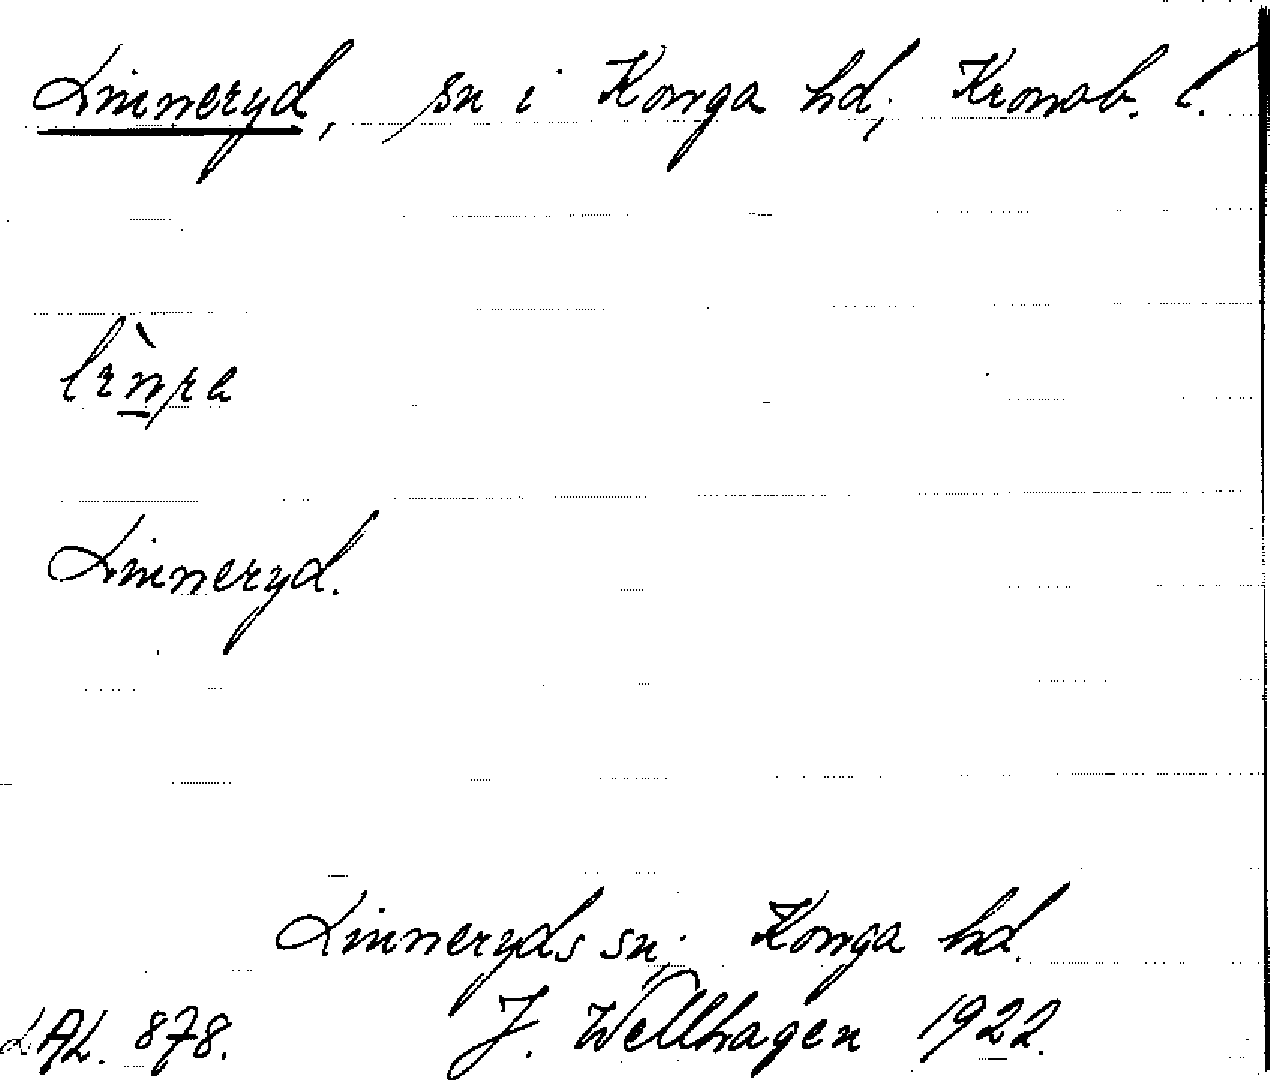 Linneryd, sn i Konga hd, Kronob. l.
Linneryd.
Linneryds sn. Konga hd.
LAL. 878. J. Wellhagen 1922.